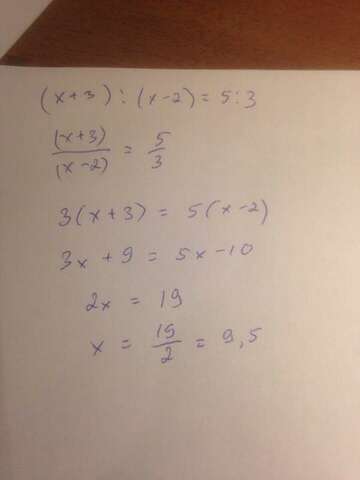 (x+3) : (x-2) = 5:3
(x+3)/(x-2) = 5/3
3(x+3) = 5(x-2)
3x + 9 = 5x - 10
2x = 19
x = 19/2 = 9,5